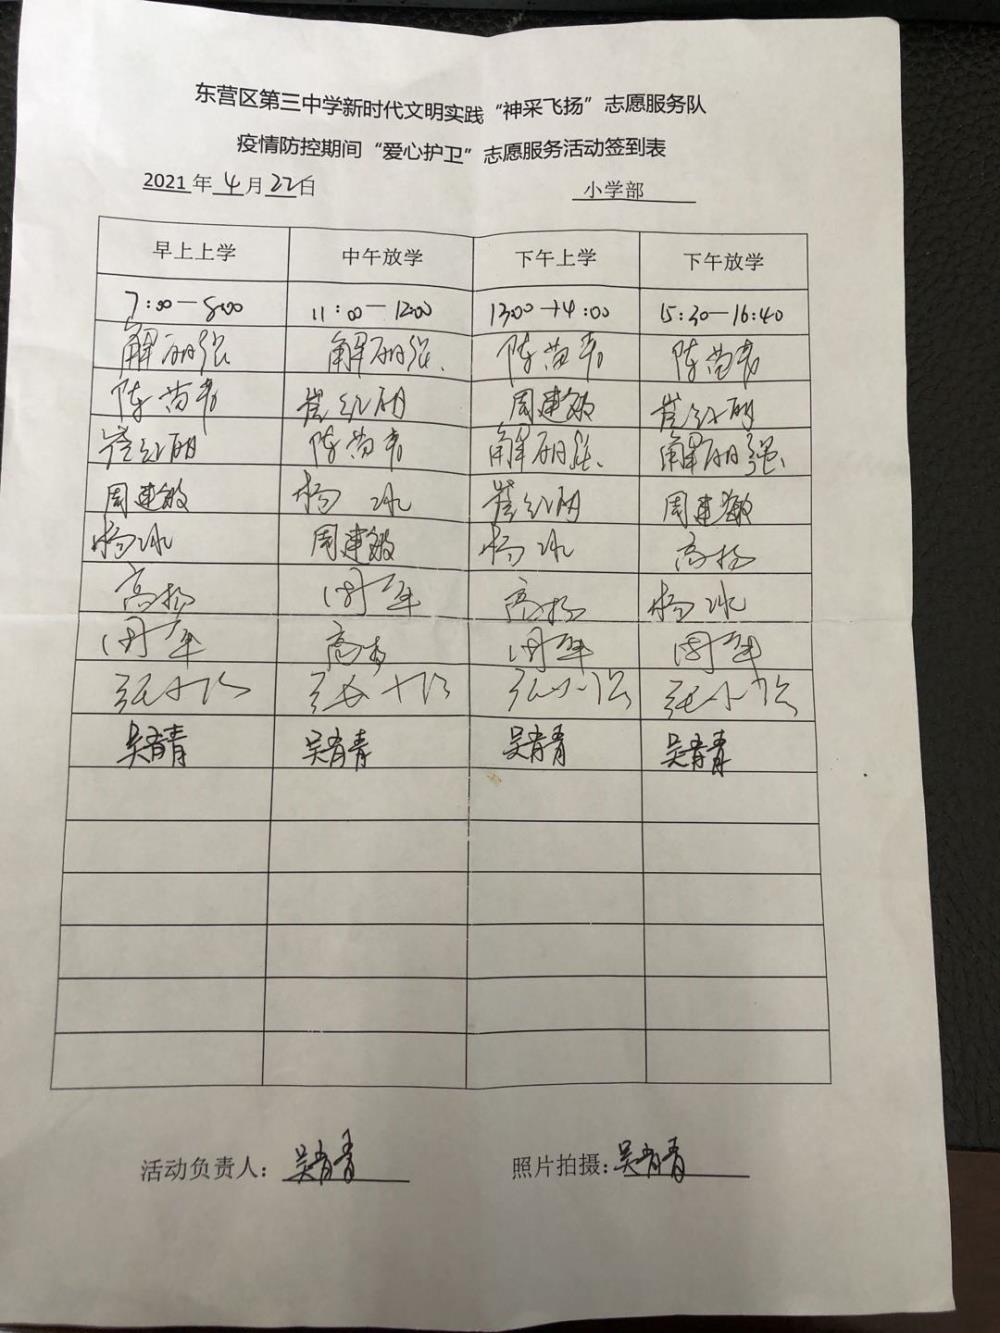 东营区第三中学新时代文明实践“神采飞扬”志愿服务队
疫情防控期间“爱心护卫”志愿服务活动签到表
2021年4月22日 小学部
早上上学 中午放学 下午上学 下午放学
7:00—8:00 11:00—12:00 13:00—14:00 15:30—16:40
解丽强 解丽强 陈苗苇 陈苗苇
陈苗苇 崔红丽 周建敏 崔红丽
崔红丽 陈苗苇 解丽强 解丽强
周建敏 杨冰 崔红丽 周建敏
杨冰 周建敏 杨冰 高杨
高杨 周军 高杨 杨冰
周军 高杨 周军 周军
张小 张小 张小 张小
吴青青 吴青青 吴青青 吴青青
活动负责人：吴青青 照片拍摄：吴青青